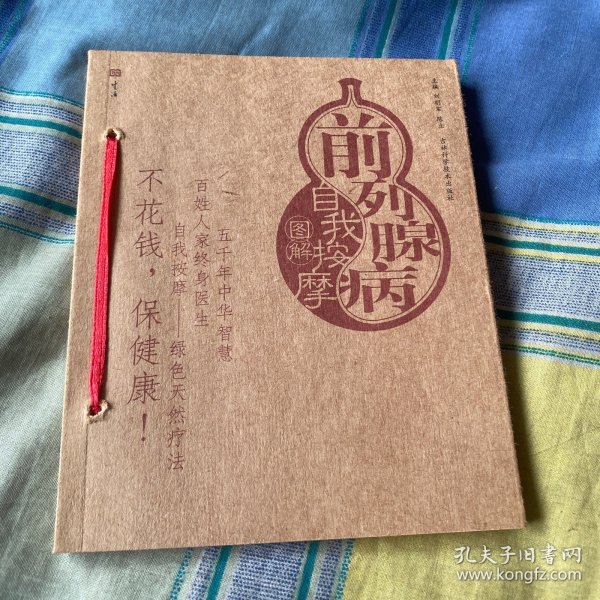 前列腺病
自我按摩
图解
主编 刘明军 陈
吉林科学技术出版社
五千年中华智慧
百姓人家终身医生
自我按摩——绿色天然疗法
不花钱,保健康!
孔夫子旧书网
www.kongfz.com